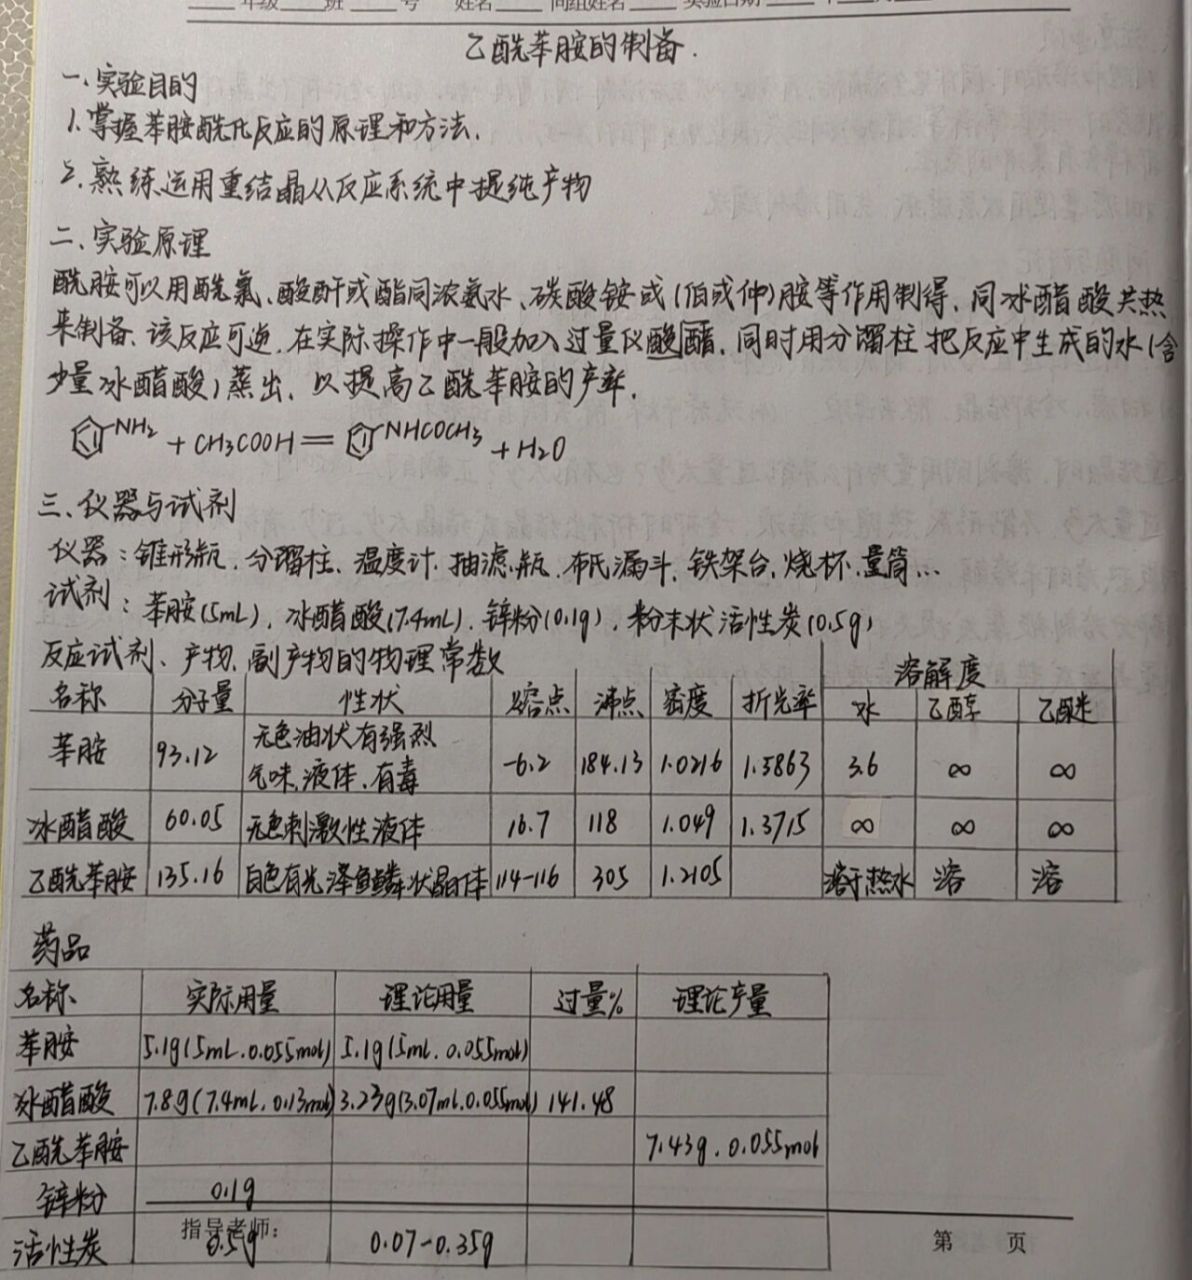 年级 班 号 姓名 同组姓名 实验日期 年
乙酰苯胺的制备.
一.实验目的
1.掌握苯胺酰化反应的原理和方法.
2.熟练运用重结晶从反应系统中提纯产物
二.实验原理
酰胺可以用酰氯、酸酐或酯同浓氨水、碳酸铵或(伯或仲)胺等作用制得.同冰醋酸共热
来制备.该反应可逆.在实际操作中一般加入过量仪酸醋.同时用分馏柱把反应中生成的水(含
少量冰醋酸)蒸出.以提高乙酰苯胺的产率.
NH2 + CH3COOH = NHCOCH3 + H2O
三、仪器与试剂
仪器:锥形瓶.分馏柱、温度计.抽滤瓶.布氏漏斗.铁架台.烧杯.量筒...
试剂:苯胺(5mL).冰醋酸(7.4mL).锌粉(0.1g).粉末状活性炭(0.5g)
反应试剂、产物.副产物的物理常数
名称 分子量 性状 熔点 沸点 密度 折光率 溶解度
水 乙醇 乙醚
苯胺 93.12 无色油状有强烈气味.液体.有毒 -6.2 184.13 1.0216 1.5863 3.6 ∞ ∞
冰醋酸 60.05 无色刺激性液体 16.7 118 1.049 1.3715 ∞ ∞ ∞
乙酰苯胺 135.16 白色有光泽鱼鳞状晶体 114-116 305 1.2105 溶于热水 溶 溶
药品
名称 实际用量 理论用量 过量% 理论产量
苯胺 5.1g(5mL.0.055mol) 5.1g(5mL.0.055mol)
冰醋酸 7.8g(7.4mL.0.13mol) 3.23g(3.07mL.0.055mol) 141.48
乙酰苯胺 7.43g.0.055mol
锌粉 0.1g
指导老师: 第 页
活性炭 0.5g 0.07-0.35g